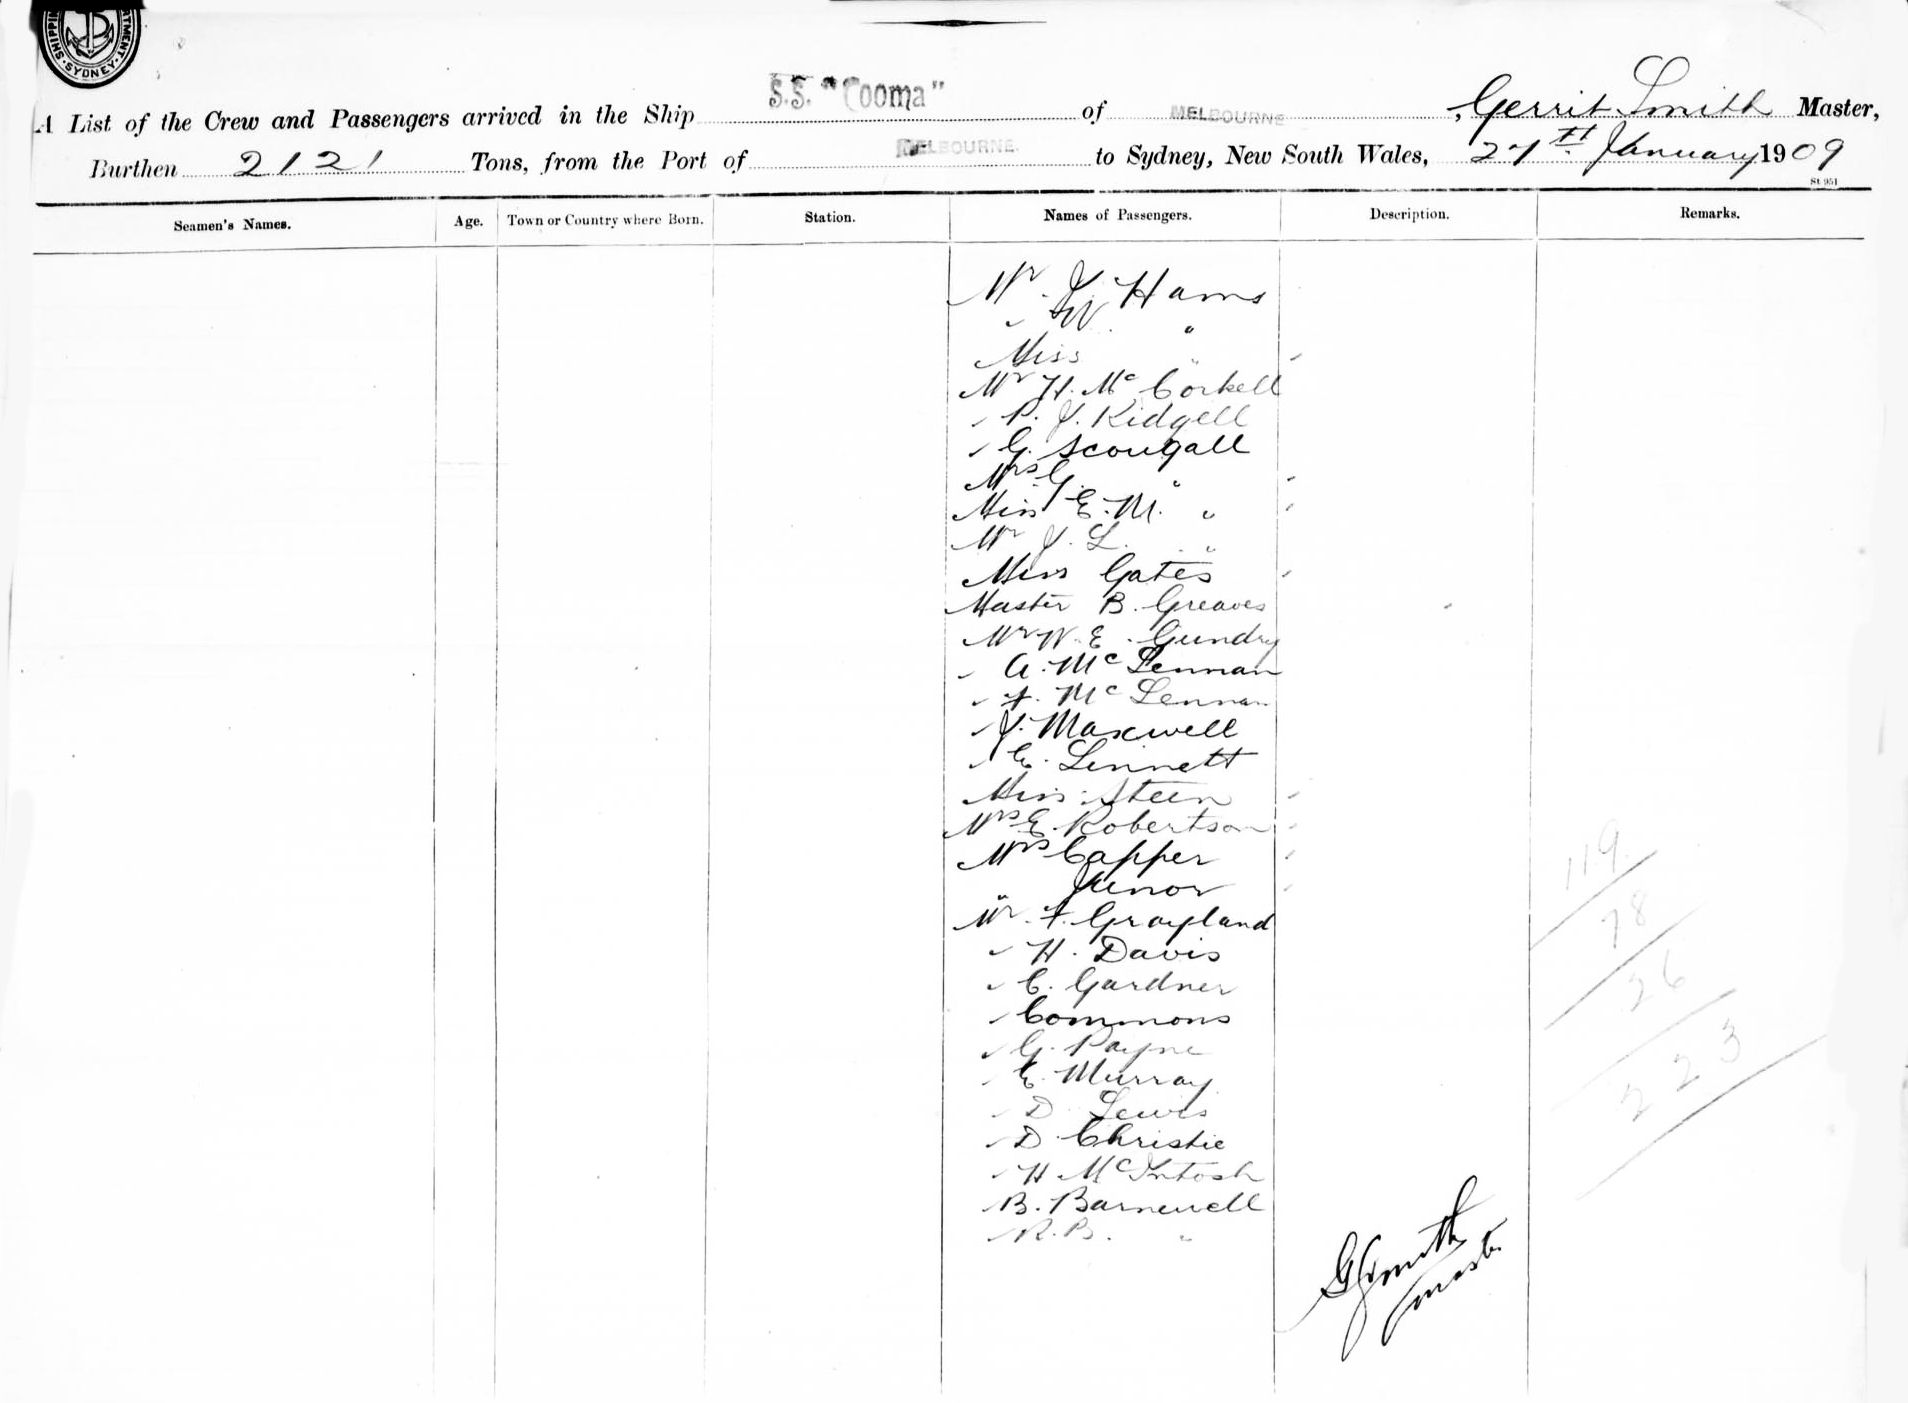 SHIPPING DEPARTMENT SYDNEY
A List of the Crew and Passengers arrived in the Ship S.S. "Cooma" of MELBOURNE, Gerrit Smith Master,
Burthen 2121 Tons, from the Port of MELBOURNE to Sydney, New South Wales, 27th January 1909
St 951
Seamen's Names. Age. Town or Country where Born. Station. Names of Passengers. Description. Remarks.
Mr. J. Hams
" W. "
Miss "
Mr H. Mc Corkell
" P. J. Kidgell
" G. Scougall
Mrs G. "
Miss E. M. "
Mr J. L. "
Miss Gates
Master B. Greaves
Mr W. E. Gundry
" A. Mc Lennan
" F. Mc Lennan
" J. Maxwell
" E. Linnett
Miss Steen
Mrs E. Robertson
Mrs Capper
" Junor
Mr. F. Grayland
" H. Davis
" C. Gardner
" Commons
" G. Payne
" E. Murray
" D. Lewis
" D. Christie
" H McIntosh
" B. Barnewell
" R. B. "
119
78
26
223
G Smith